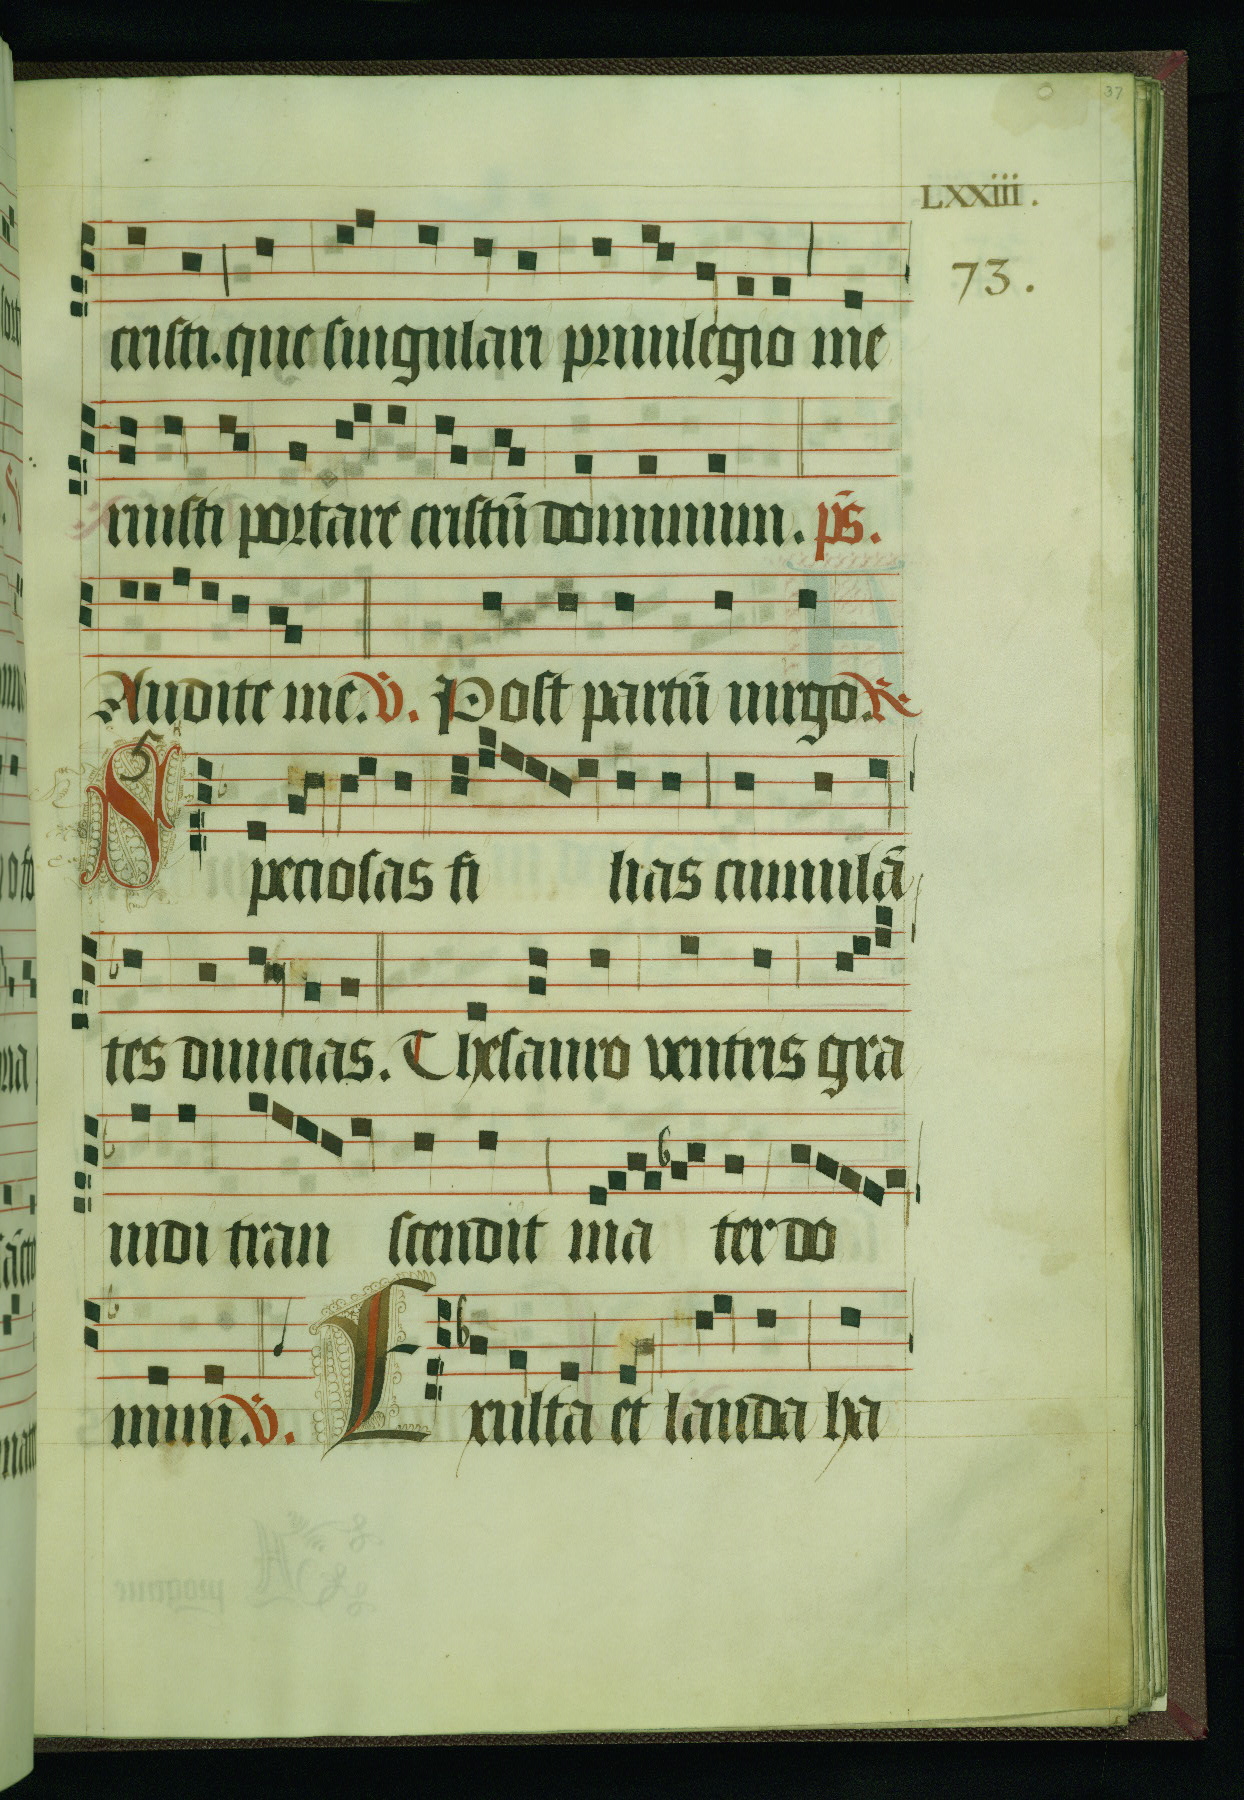 37
LXXiii.
73.
cristi. que singulari priuilegio me
ruisti portare cristū dominum. p̄s.
Audite me. v̄. Post partū uirgo. R.
Speciosas fi lias cumulā
tes diuicias. Thesauro ventris gra
uidi tran scendit ma ter do
mini. v̄. Exulta et lauda ha